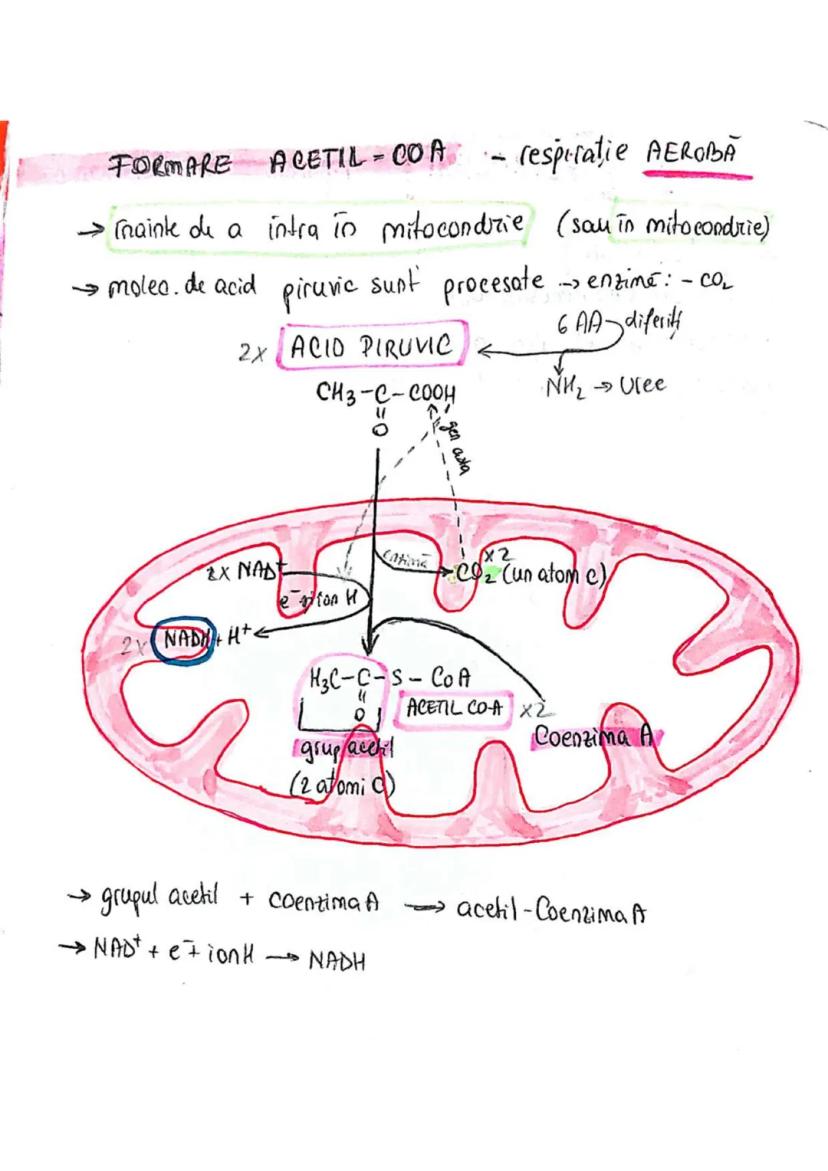 FORMARE ACETIL-COA - respirație AEROBĂ
→ înainte de a intra în mitocondrie (sau în mitocondrie)
→ molec. de acid piruvic sunt procesate → enzimă: - CO₂
6 AA diferiți
2x ACID PIRUVIC
NH₂ → Uree
CH₃-C-COOH
=
O
gen asta
enzimă
x2
2x NAD⁺
CO₂ (un atom C)
e⁻ și ion H
2x NADH + H⁺
H₃C-C-S-CoA
=
O
ACETIL CO-A
x2
Coenzima A
grup acetil
(2 atomi C)
→ grupul acetil + coenzima A → acetil-Coenzima A
→ NAD⁺ + e⁻ + ion H → NADH